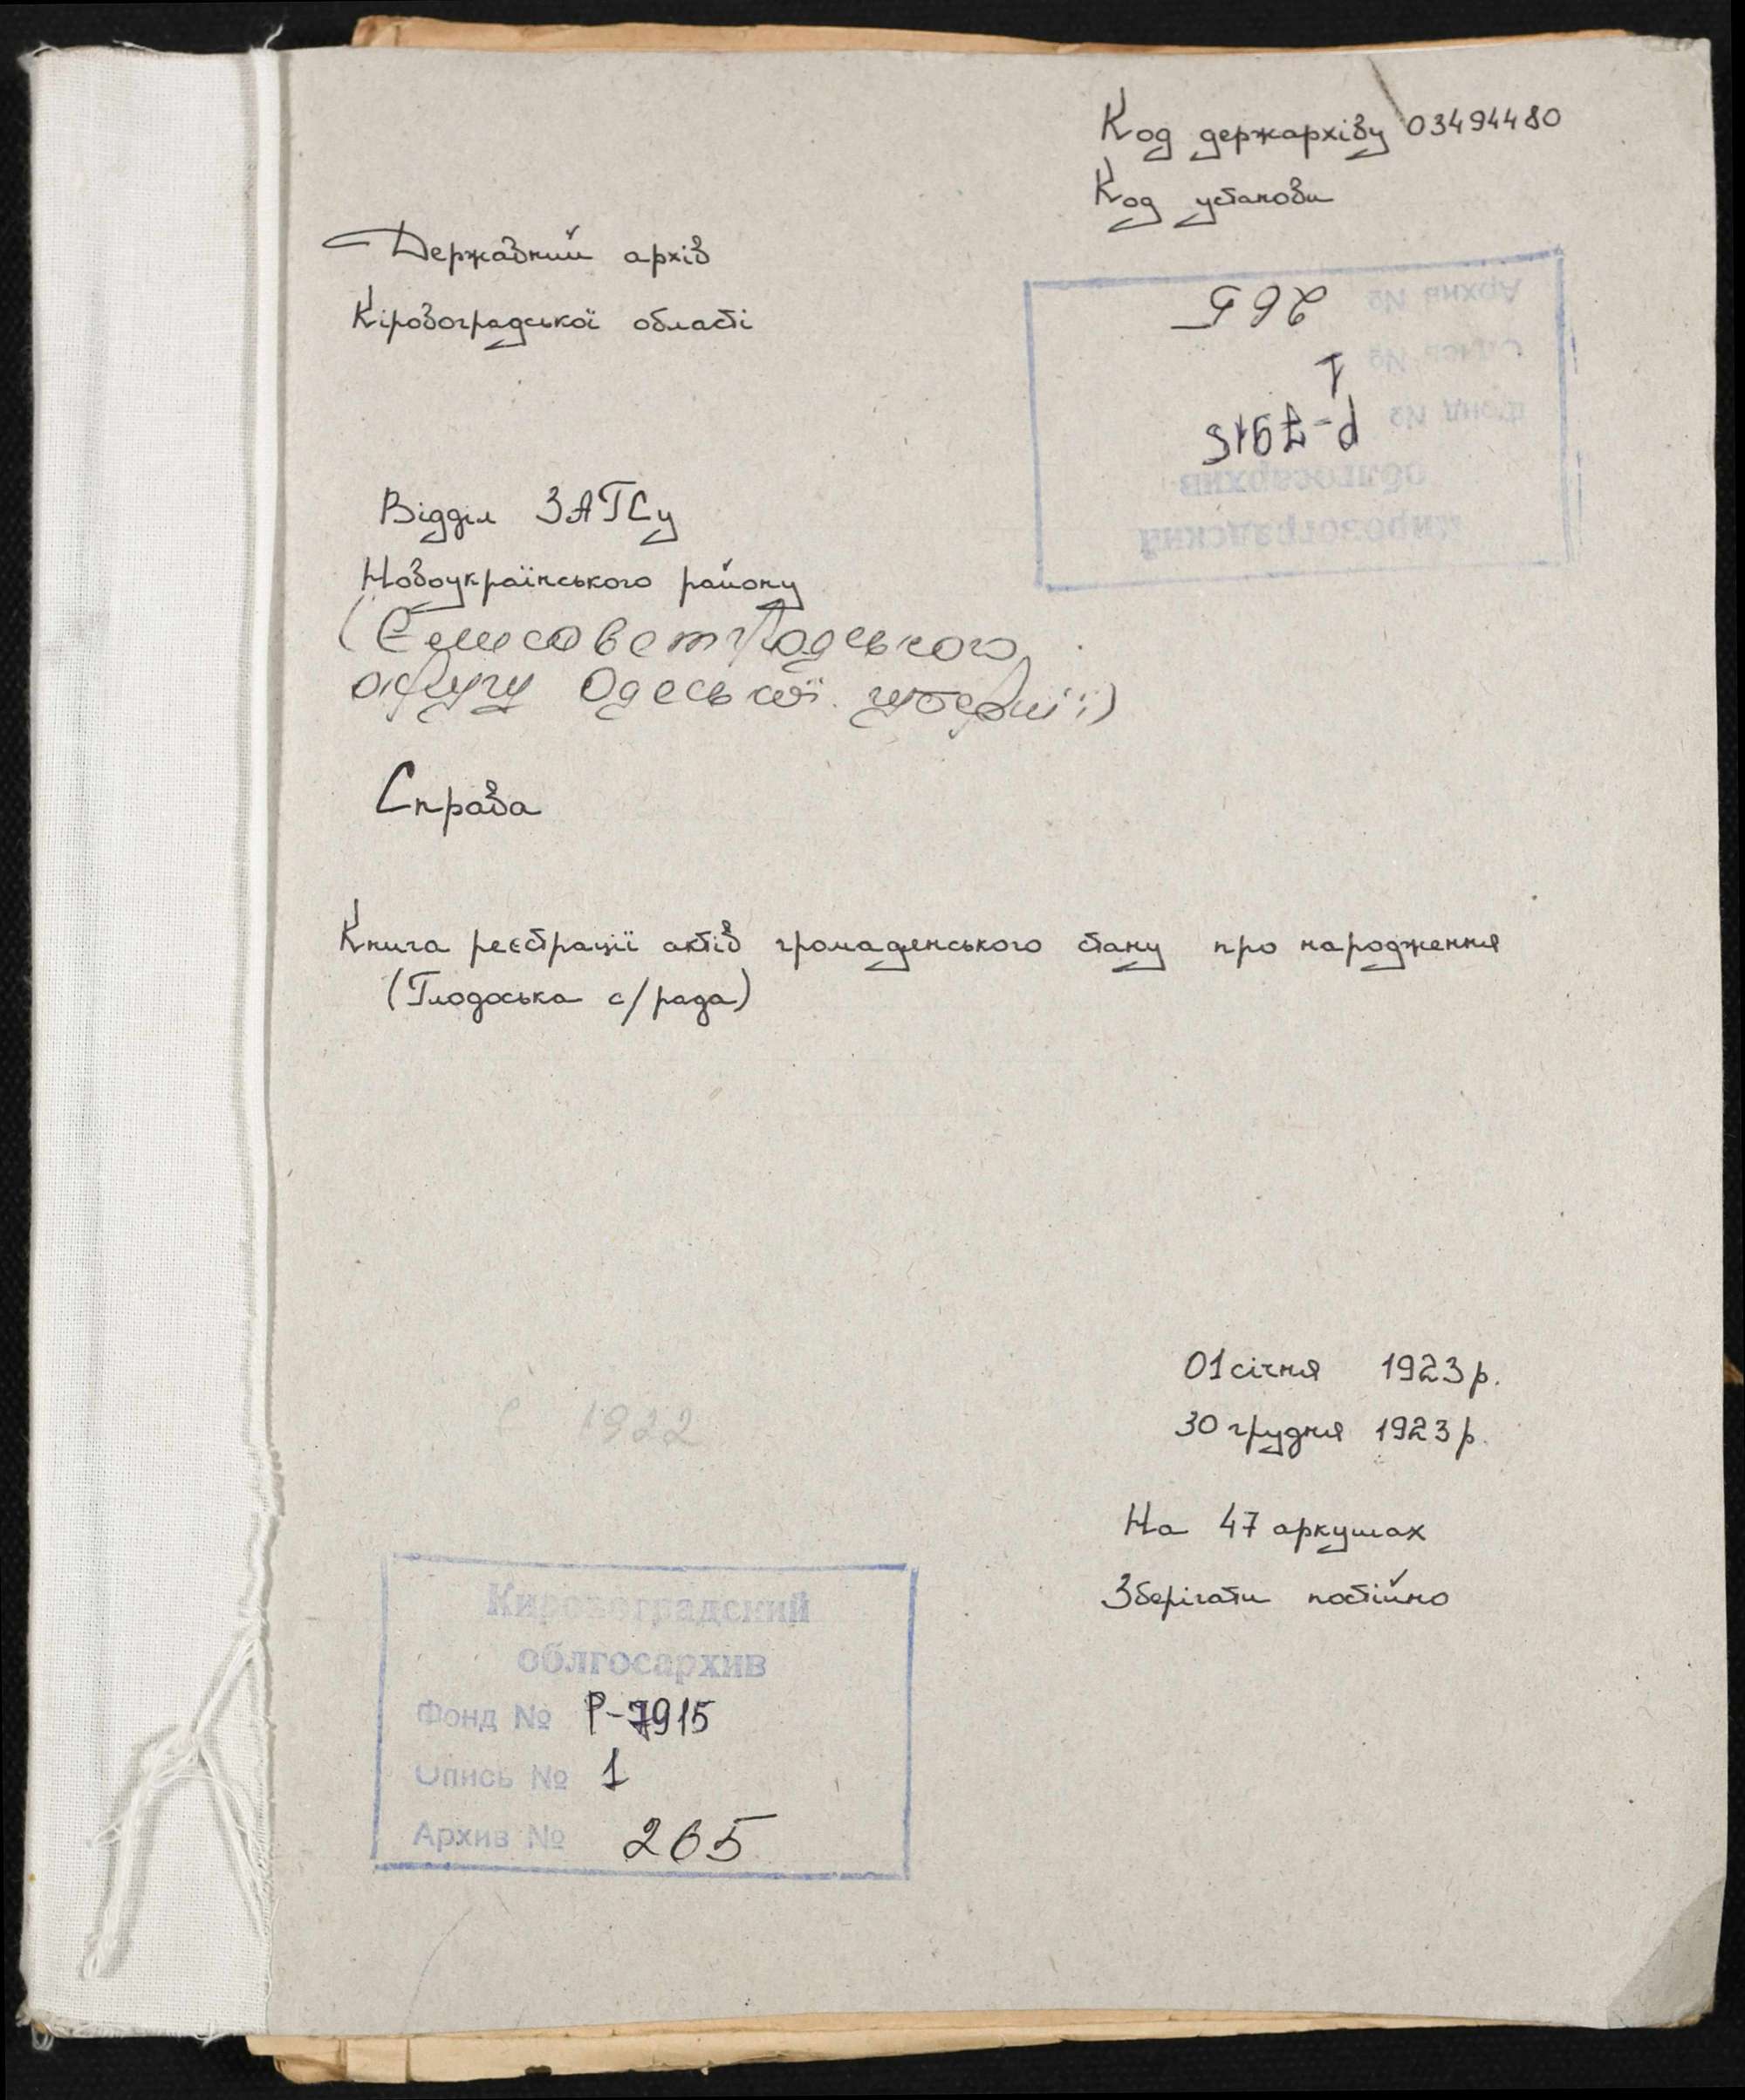 Код держархіву 03494480
Код установи
Державний архів
Кіровоградської області
Архив № 265
Опись № 1
Фонд № Р-7915
облгосархив
Кировоградский
Відділ ЗАГСу
Новоукраїнського району
(Єлисаветградського
округу Одеської губернії)
Справа
Книга реєстрації актів громадянського стану про народження
(Глодоська с/рада)
01 січня 1923 р.
30 грудня 1923 р.
1922
На 47 аркушах
Зберігати постійно
Кировоградский
облгосархив
Фонд № Р-7915
Опись № 1
Архив № 265